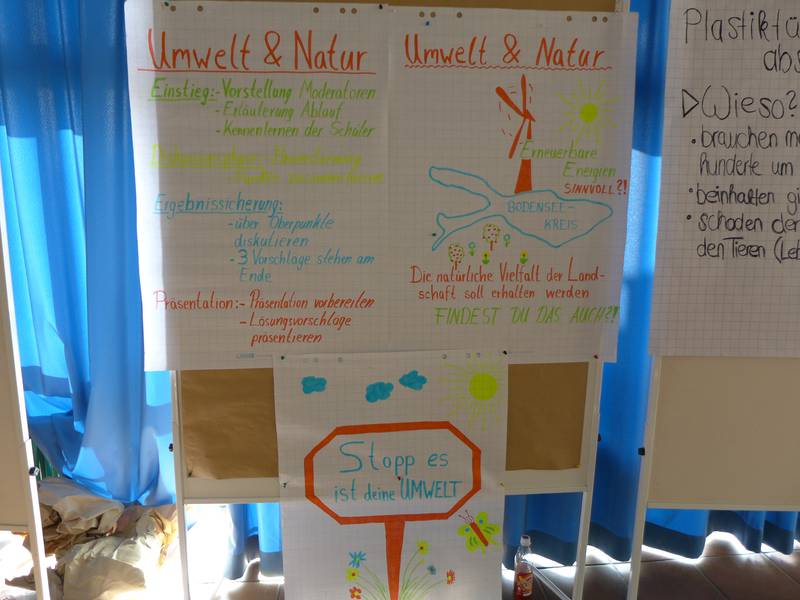 Umwelt & Natur
Einstieg:- Vorstellung Moderatoren
- Erläuterung Ablauf
- Kennenlernen der Schüler
Diskussionsphase:-
- Punkte
Ergebnissicherung:
- über Oberpunkte
diskutieren
- 3 Vorschläge stehen am
Ende
Präsentation:- Präsentation vorbereiten
- Lösungsvorschläge
präsentieren
Umwelt & Natur
Erneuerbare
Energien
SINNVOLL?!
BODENSEE-
KREIS
Die natürliche Vielfalt der Land-
schaft soll erhalten werden
FINDEST DU DAS AUCH?!
Stopp es
ist deine UMWELT
Plastiktü
abs
Wieso?
• brauchen me
hunderte um
• beinhalten gi
• schaden der
den Tieren (Leb